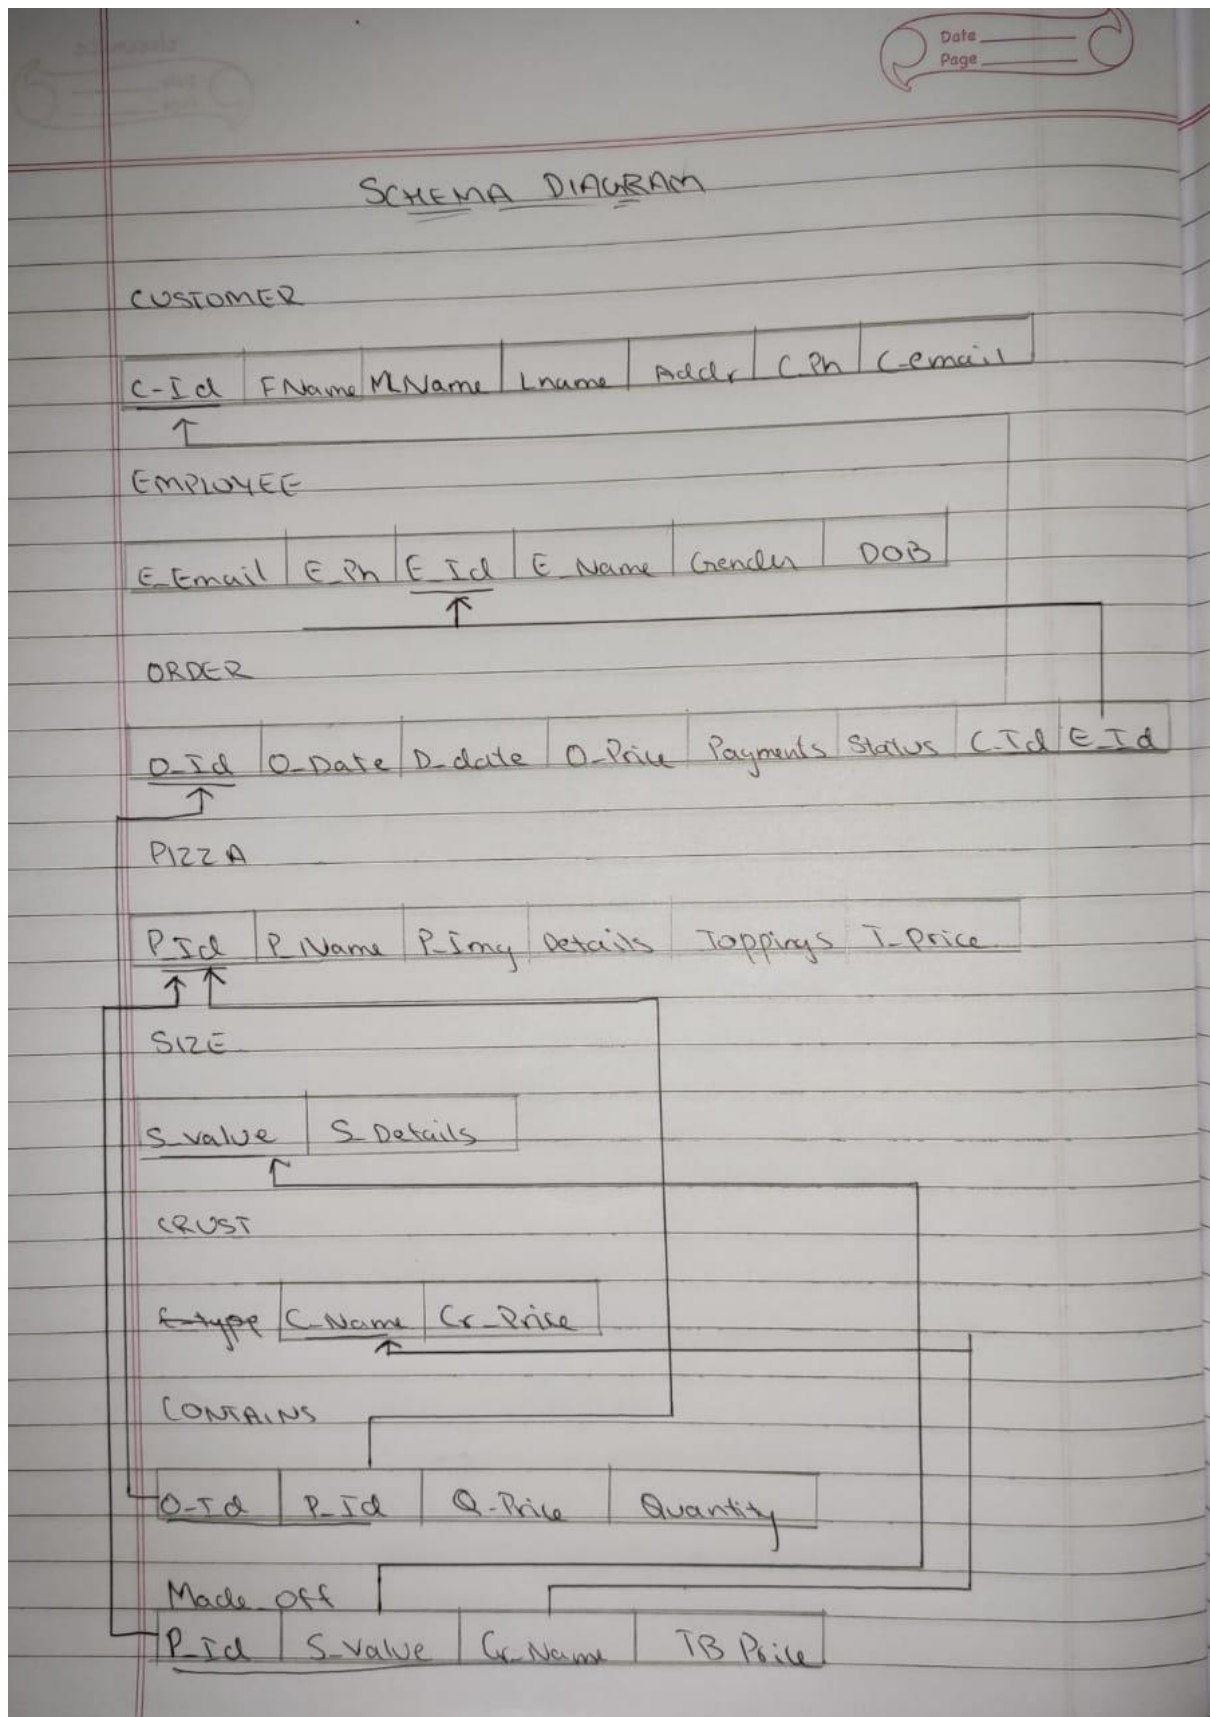 Date
Page
SCHEMA DIAGRAM
CUSTOMER
C-Id FName MName Lname Addr C.Ph C-email
EMPLOYEE
E_Email E_Ph E_Id E_Name Gender DOB
ORDER
O_Id O_Date D_date O_Price Payments Status C_Id E_Id
PIZZA
P_Id P_Name P_Img Details Toppings T_Price
SIZE
S_value S_Details
CRUST
C_Name Cr_Price
CONTAINS
O-Id P_Id Q-Price Quantity
Made_off
P_Id S_value Cr_Name TB Price